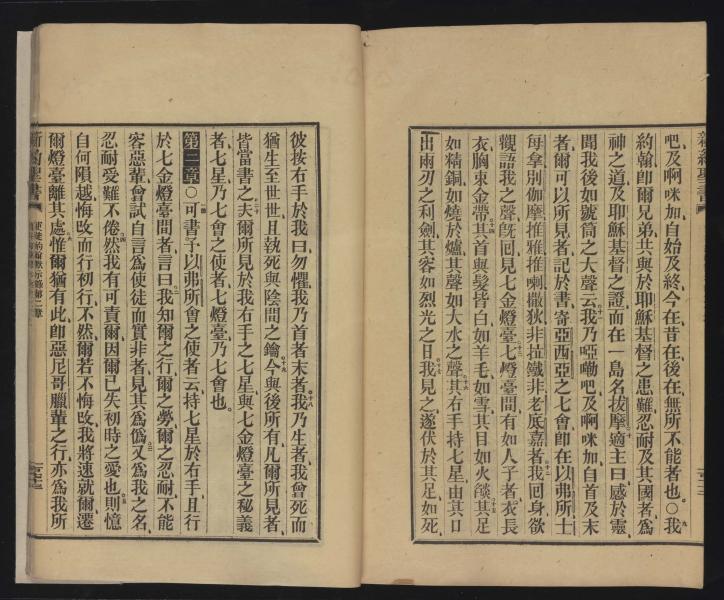 新約聖書
吧、及啊咪加、自始及終、今在、昔在、後在、無所不能者也。○我
約翰、卽爾兄弟、共與於耶穌基督之患難、忍耐、及其國者、爲
神之道、及耶穌基督之證、而在一島名拔摩、適主日、感於靈、
聞我後如號筒之大聲、云、我乃啞嘞吧、及啊咪加、自首及末
者、爾可以所見者記於書、寄亞西亞之七會、卽在以弗所、士
每拿、別伽摩、推雅推喇、撒狄、非拉鐵非、老底嘉者、我回身、欲
觀語我之聲、旣回、見七金燈臺、七燈臺間、有如人子者、衣長
衣、胸束金帶、其首與髮、皆白如羊毛、如雪、其目如火燄、其足
如精銅、如燒於爐、其聲如大水之聲、其右手持七星、由其口
出兩刃之利劍、其容如烈光之日、我見之、遂伏於其足如死、
彼按右手於我、曰、勿懼、我乃首者、末者、我乃生者、我曾死、而
猶生至世世、且執死與陰間之鑰、今與後所有、凡爾所見者、
皆當書之、夫爾所見於我右手之七星、與七金燈臺之秘義
者、七星乃七會之使者、七燈臺乃七會也。
第二章○可書予以弗所會之使者、云、持七星於右手、且行
於七金燈臺間者、言曰、我知爾之行、爾之勞、爾之忍耐、不能
容惡輩、曾試自言爲使徒而實非者、見其爲僞、又爲我之名、
忍耐受難不倦、然我有可責爾、因爾已失初時之愛也、則憶
自何隕越、悔改而行初行、不然、爾若不悔改、我將速就爾、遷
爾燈臺離其處、惟爾猶有此、卽惡尼哥臘輩之行、亦爲我所
新約聖書